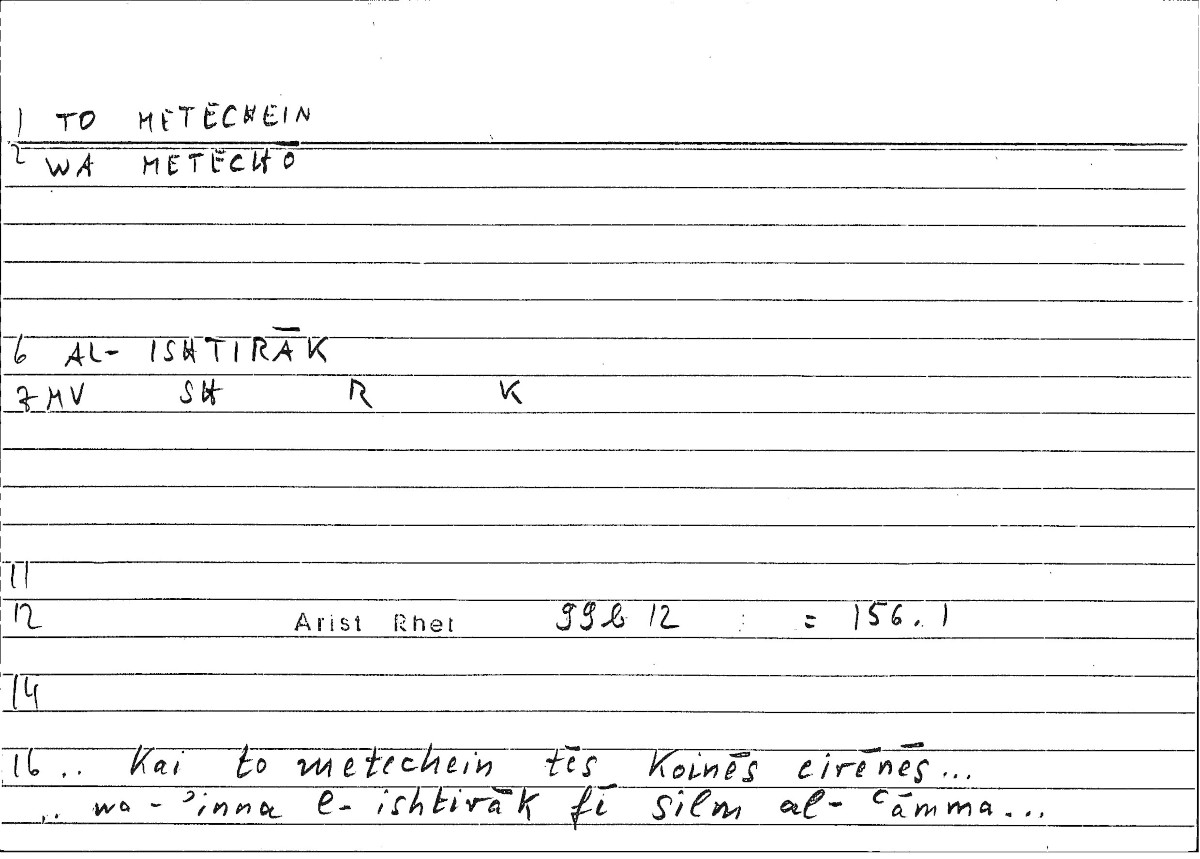 1 TO METECHEIN
2 WA METECHŌ
6 AL- ISHTIRĀK
7 MV SH R K
11
12 Arist Rhet 99b 12 = 156.1
14
16 .. Kai to metechein tēs Koinēs eirēnēs...
.. wa-ʾinna l-ishtirāk fī silm al-ʿāmma...